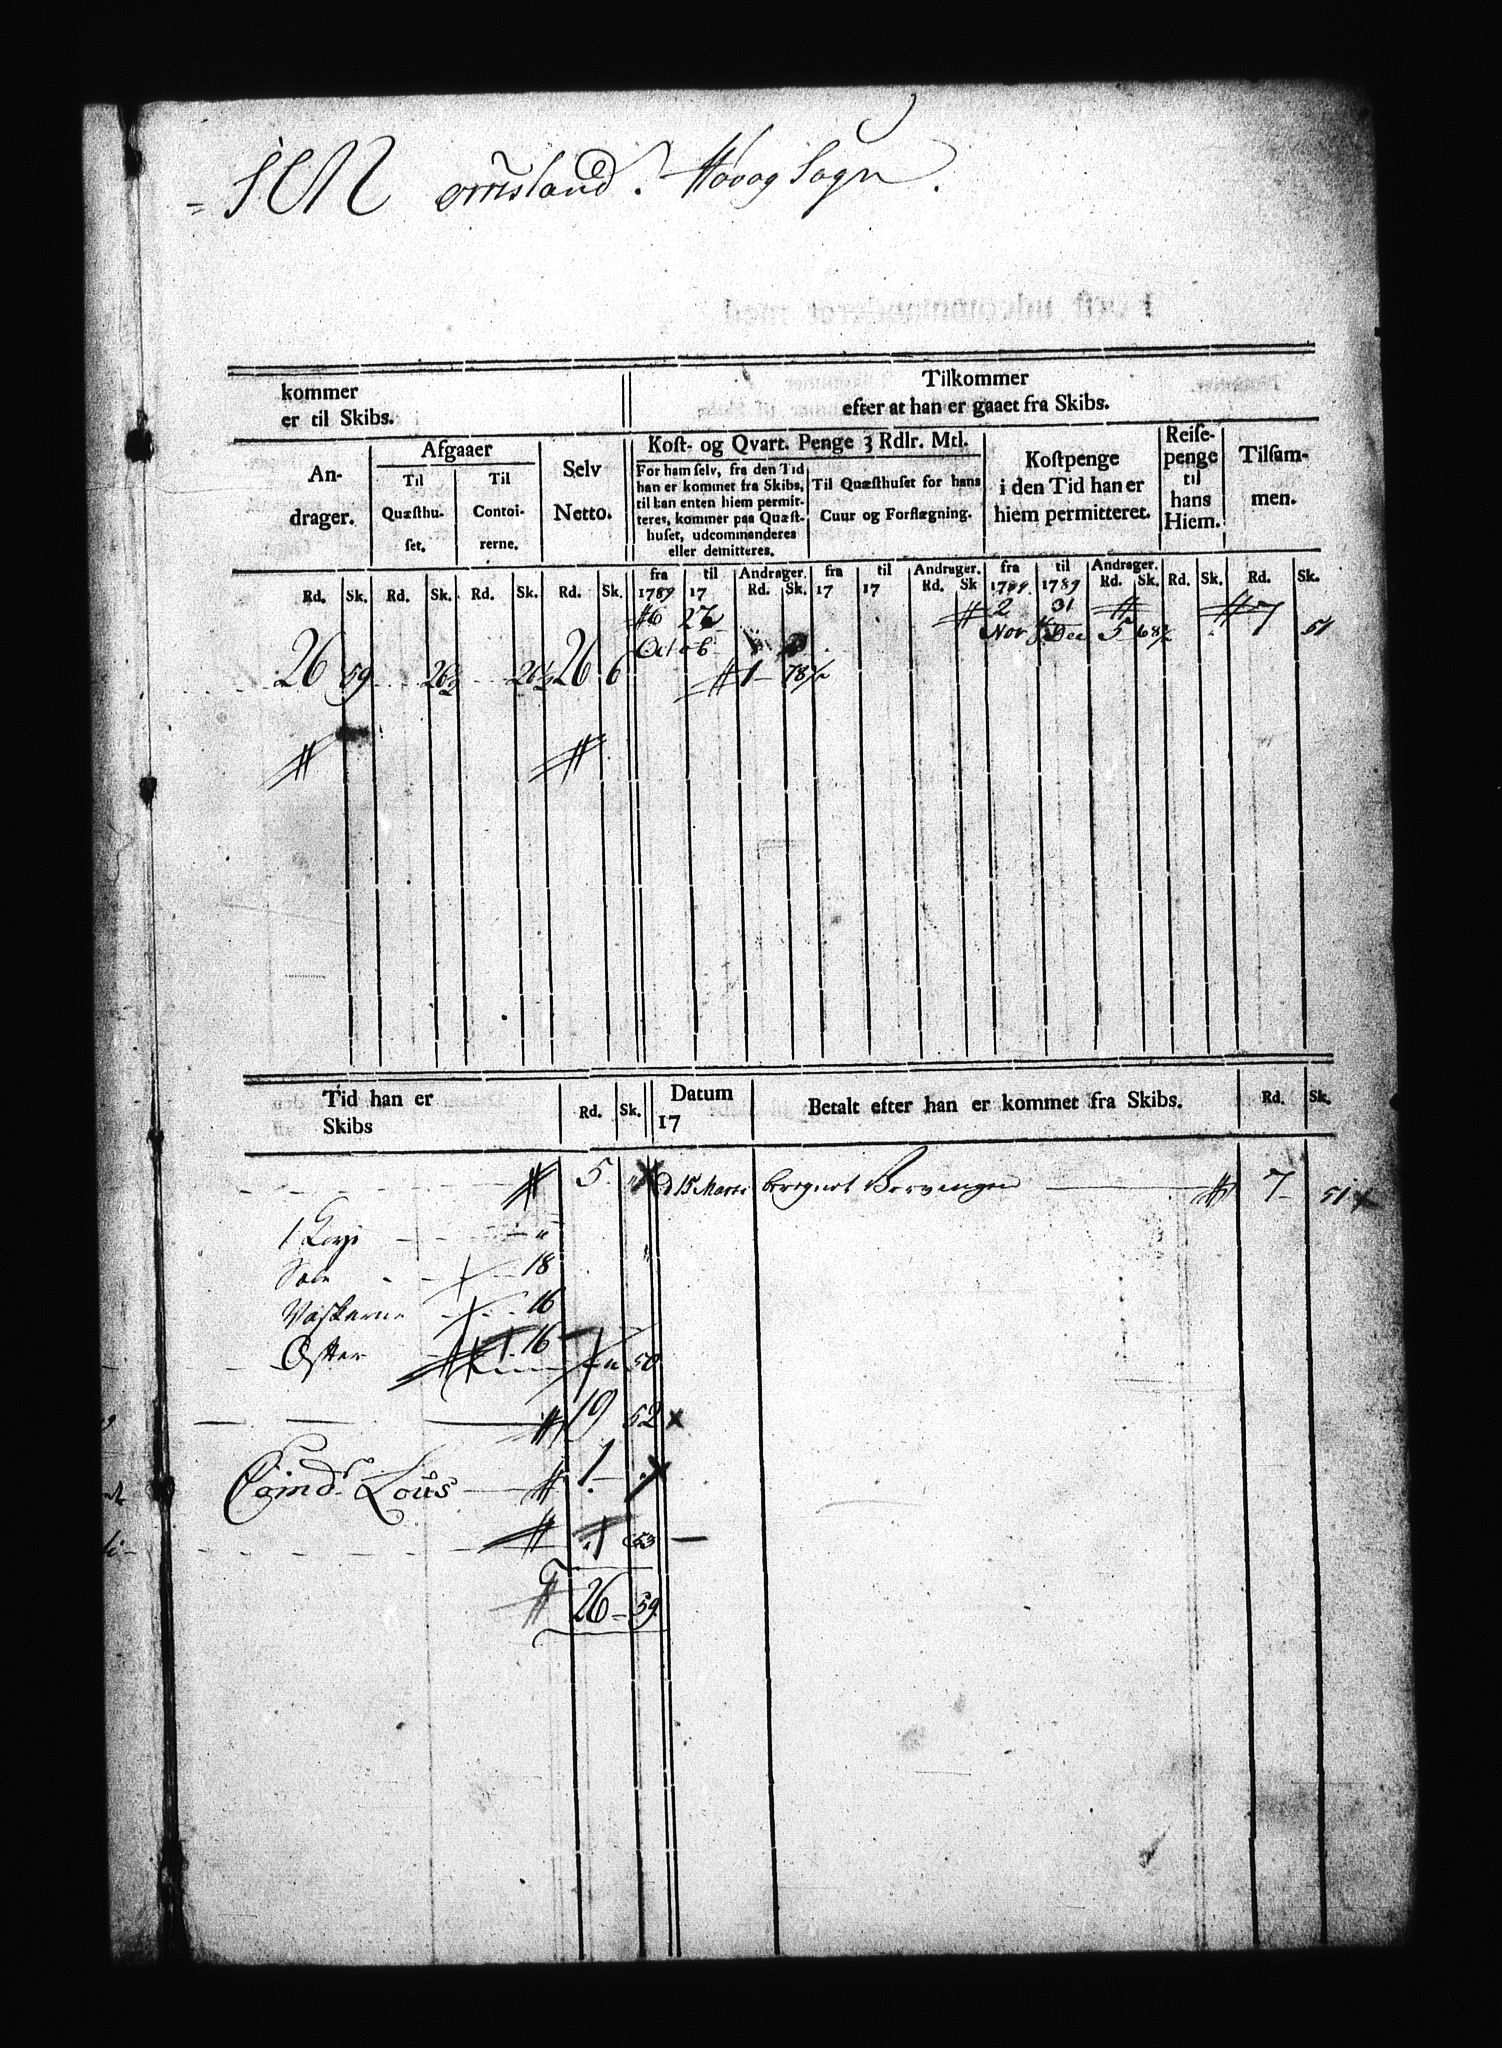 ørnsland. Høvog Sogn.
kommer
er til Skibs.
Tilkommer
efter at han er gaaet fra Skibs.
An-
drager.
Afgaaer
Til
Quæsthu-
set.
Til
Contoi-
rerne.
Selv
Netto.
Kost- og Qvart. Penge 3 Rdlr. Mtl.
For ham selv, fra den Tid
han er kommet fra Skibs,
til han enten hiem permit-
teres, kommer paa Quæst-
huset, udcommanderes
eller demitteres.
Til Quæsthuset for hans
Cuur og Forflægning.
Kostpenge
i den Tid han er
hiem permitteret.
Reise-
penge
til
hans
Hiem.
Tilsam-
men.
fra til Andrager. fra til Andrager. fra til Andrager.
Rd. Sk. Rd. Sk. Rd. Sk. Rd. Sk. 1789 17 Rd. Sk. 17 17 Rd. Sk 1789 1789 Rd. Sk. Rd. Sk. Rd. Sk.
16 26 2 31
Octob Nov Dec 5 68½ 7 51
26 59 26½ 26½ 26 6 1 78½
Tid han er
Skibs
Rd. Sk.
Datum
17
Betalt efter han er kommet fra Skibs.
Rd. Sk.
5 " d 15 Marts beregnet 7 51
1
18
16
16
50
19 52
Comd. Lous 1
1 53
26 59